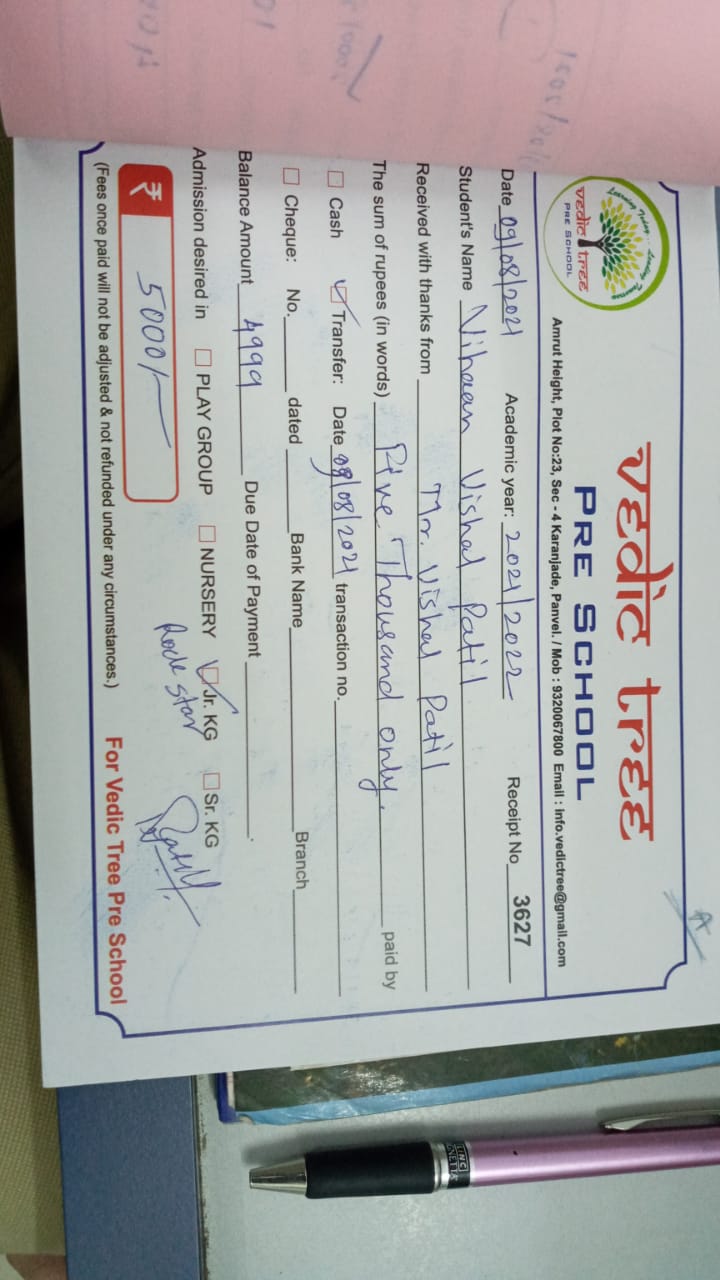 Learning Today... Leading Tomorrow
vedic tree
PRE SCHOOL
vedic tree
PRE SCHOOL
Amrut Height, Plot No:23, Sec - 4 Karanjade, Panvel. / Mob : 9320067800 Email : info.vedictree@gmail.com
Date 09/08/2021 Academic year: 2021/2022 Receipt No 3627
Student's Name Vihaan Vishal Patil
Received with thanks from Mr. Vishal Patil
The sum of rupees (in words) Five Thousand only. paid by
☐ Cash ☑ Transfer: Date 09/08/2021 transaction no.
☐ Cheque: No. dated Bank Name Branch
Balance Amount 4999 Due Date of Payment
Admission desired in ☐ PLAY GROUP ☐ NURSERY ☑ Jr. KG ☐ Sr. KG
Rock Star
₹ 5000/-
(Fees once paid will not be adjusted & not refunded under any circumstances.) For Vedic Tree Pre School